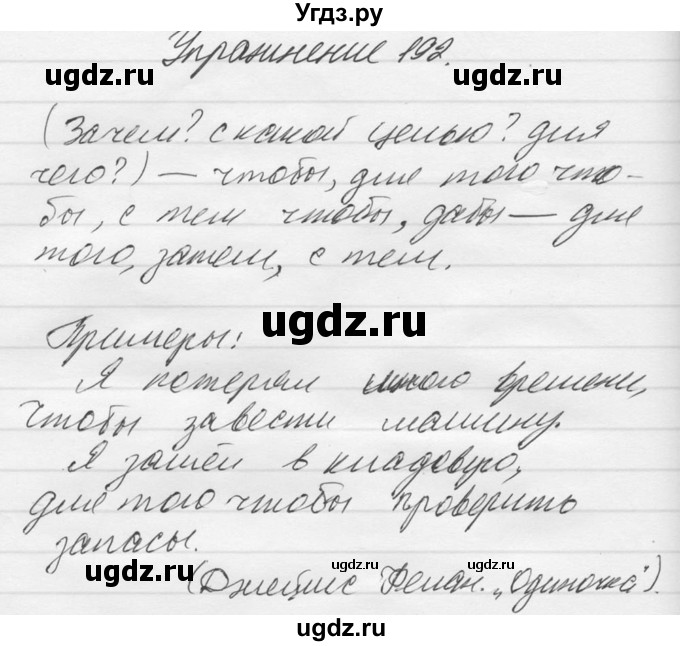 Угдз.ру
Упражнение 192.
ugdz.ru ugdz.ru
(Зачем? с какой целью? для
чего?) — чтобы, для того что-
бы, с тем чтобы, дабы — для
того, затем, с тем.
ugdz.ru
Примеры:
Я потерял много времени,
чтобы завести машину.
Я зашёл в кладовую,
для того чтобы проверить
запасы.
ugdz.ru ugdz.ru ugdz.ru
(Джеймс Фелан. „Одиночка").
ugdz.ru